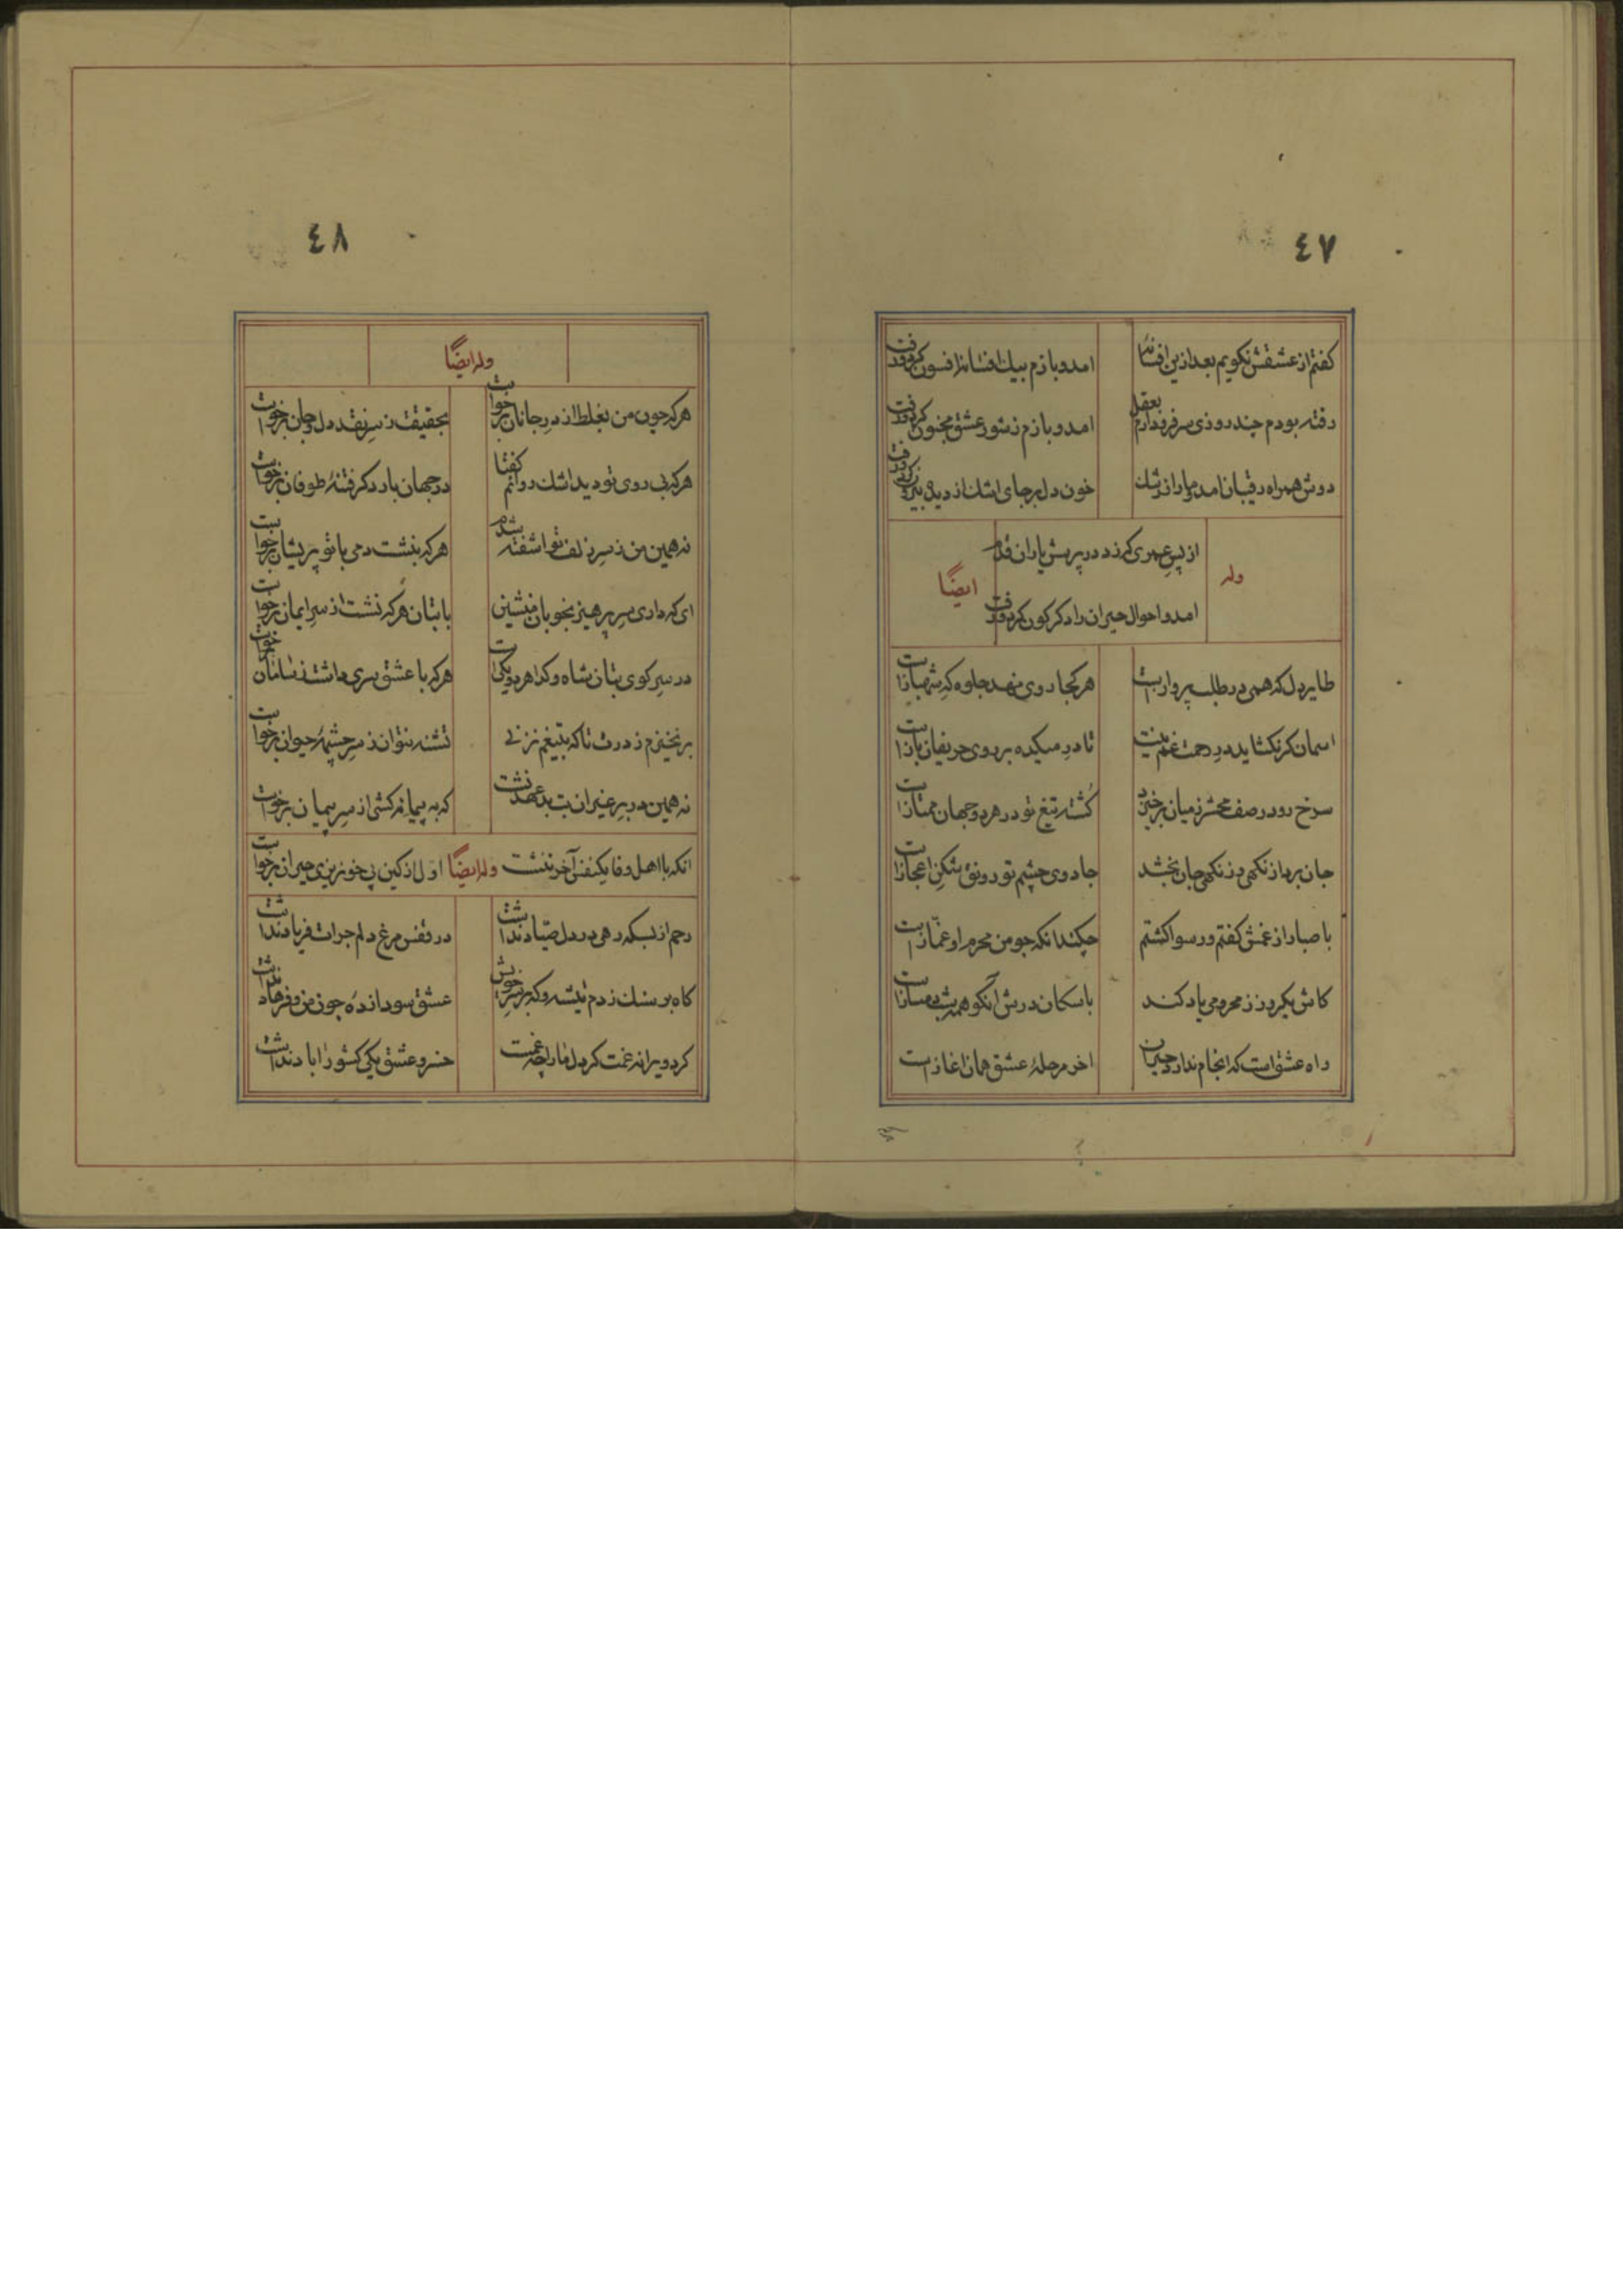 ٤٧
كفتم از عشقش نكويم بعد ازين افسانهٔ امد و بازم بيك افسانه افسون كرد و رفت
رفته بودم چند روزى سر فرو دارم بعقل امد و بازم ز شور عشق مجنون كرد و رفت
دوش همراه رقيبان امد و مارا ز رشك خون دل بر جاى اشك از ديده بيرون كرد و رفت
از پس عمرى كه زد در پرسش ياران قدم
وله ايضًا
امد و احوال حيران را دكركون كرد و رفت
طاير دل كه همى در طلب پرواز است هر كجا روى نهد جلوه كه شهباز است
اسمان كر نكشايد در رحمت غم نيست تا در ميكده بر روى حريفان باز است
سرخ رو در صف محشر ز ميان برخيزد كُشته تيغ تو در هر دو جهان ممتاز است
جان برد از نكهى وز نكهى جان بخشد جادوى چشم تو رونق شكن اعجاز است
با صبا راز غمش كفتم و رسوا كشتم چكند انكه چو من محرم او غمّاز است
كاش يكروز ز محرومى ياد كند با سكان درش آنكو همه شب دمساز است
راه عشق است كه انجام ندارد حيران اخر مرحلهٔ عشق همان اغاز است
٤٨
وله ايضًا
هركه چون من بغلط از در جانان برخواست بحقيقت ز سر نقد دل و جان برخواست
هركه بى روى تو ديد اشك روانم كفتا در جهان بار دكر فتنهٔ طوفان برخواست
نه همين من ز سر زلف تو اشفته شدم هركه بنشست دمى با تو پريشان برخواست
اى كه دارى سر پرهيز بخوبان منشين با بتان هركه نشست از سر ايمان برخواست
در سر كوى بتان شاه و كدا هر دو يكيست هركه با عشق سرى داشت ز سامان برخواست
برنخيزم ز درت تا كه بتيغم نزنى تشنه نتوان ز سر چشمهٔ حيوان برخواست
نه همين در بر غيران بت بد عهد نشست كه به پيمانه كشى از سر پيمان برخواست
انكه با اهل وفا يكنفس آخر ننشست وله ايضًا اول از كين پى خونريزى حيران برخواست
رحم از بسكه رهى در دل صيّاد نداشت در قفس مرغ دلم جرات فرياد نداشت
كاه بر سنك زدم تيشه و كه بر سر خويش عشق سودازده چون من و فرهاد نداشت
كرد ويرانه غمت كر دل مارا چه غمست خسرو عشق يكى كشور اباد نداشت